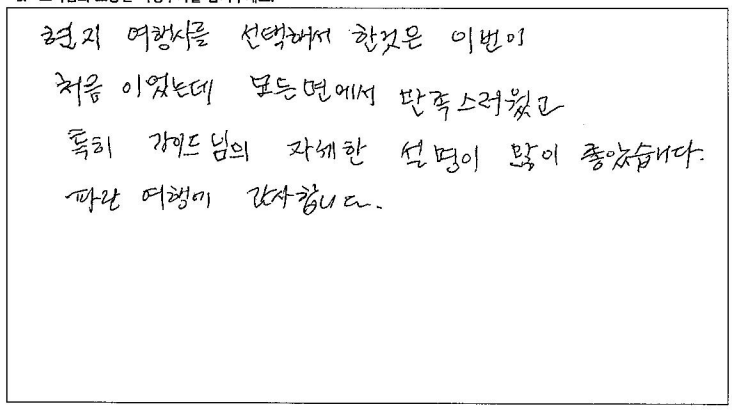 현지 여행사를 선택해서 한것은 이번이
처음 이었는데 모든면에서 만족스러웠고
특히 가이드님의 자세한 설명이 많이 좋았습니다.
파란 여행에 감사합니다.